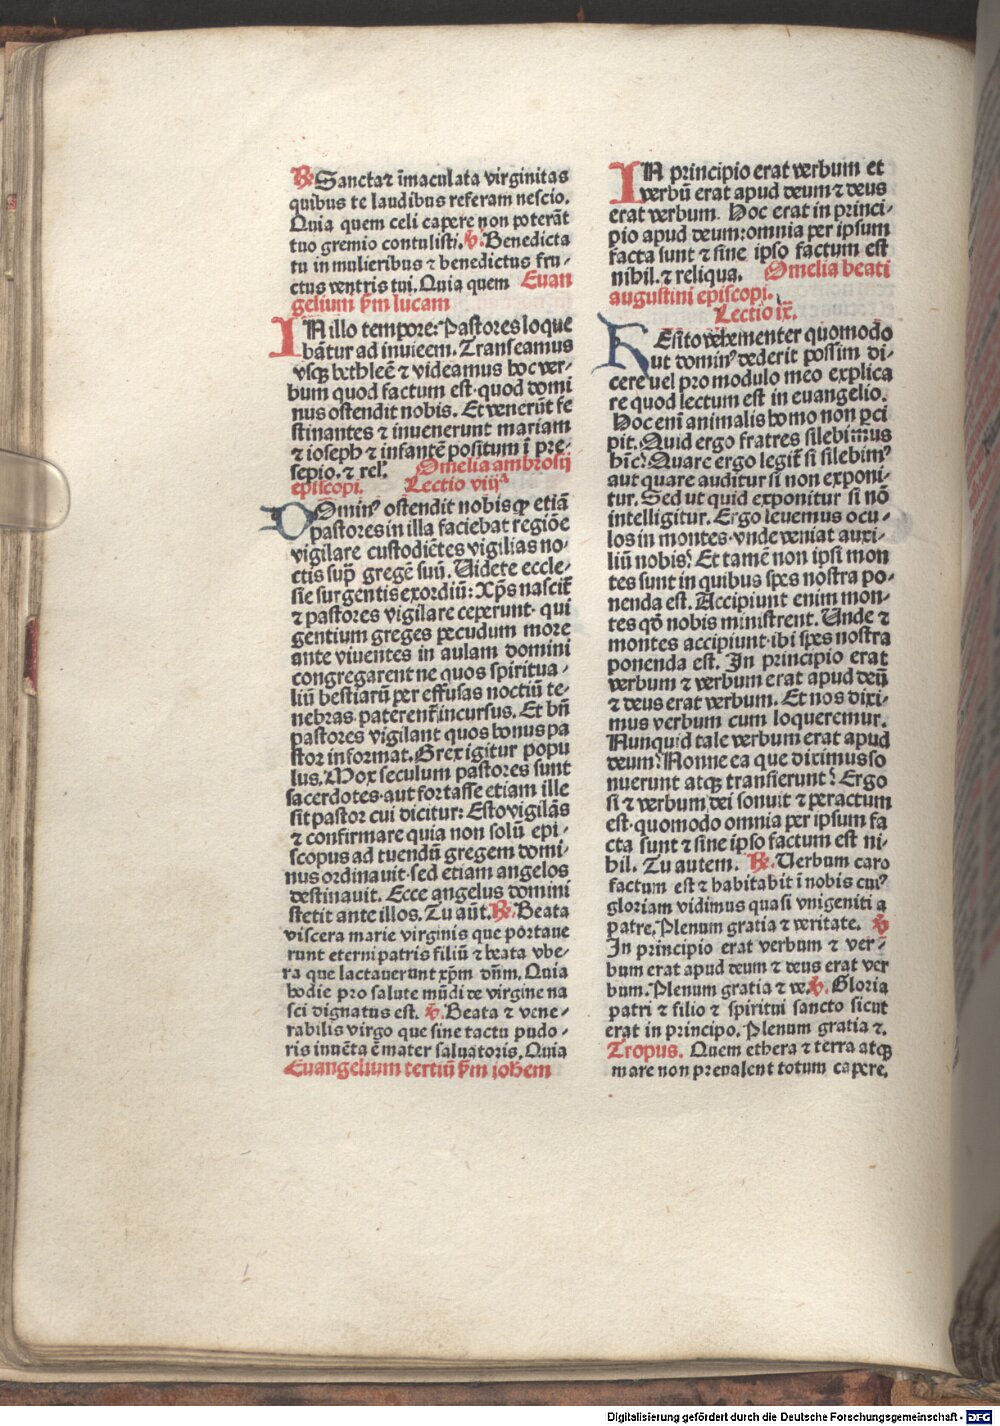 ℟ Sancta ⁊ īmaculata virginitas
quibus te laudibus referam nescio.
Quia quem celi capere non poterāt
tuo gremio contulisti. ℣. Benedicta
tu in mulieribus ⁊ benedictus fru-
ctus ventris tui. Quia quem Euan
gelium ẜm lucam
IN illo tempore: Pastores loque
bātur ad inuicem. Transeamus
vsqꝫ bethleē ⁊ videamus hoc ver-
bum quod factum est· quod domi
nus ostendit nobis. Et venerūt fe
stinantes ⁊ inuenerunt mariam
⁊ ioseph ⁊ infantē positum ī pre-
sepio. ⁊ rel'. Omelia ambrosij
episcopi. Lectio viijᵃ
DOminꝰ ostendit nobis ꝙ etiā
pastores in illa faciebat regiōe
vigilare custodiētes vigilias no-
ctis suꝑ gregē suū. Videte eccle-
sie surgentis exordiū: Xp̄s nascit᷑
⁊ pastores vigilare ceperunt· qui
gentium greges pecudum more
ante viuentes in aulam domini
congregarent ne quos spiritua-
liū bestiarū per effusas noctiū te-
nebras paterent᷑ incursus. Et bn̄
pastores vigilant quos bonus pa
stor informat. Grex igitur popu
lus. Nox seculum pastores sunt
sacerdotes· aut fortasse etiam ille
sit pastor cui dicitur: Esto vigilās
⁊ confirmare quia non solū epi-
scopus ad tuendū gregem domi-
nus ordinauit· sed etiam angelos
destinauit. Ecce angelus domini
stetit ante illos. Tu aūt. ℟. Beata
viscera marie virginis que portaue
runt eterni patris filiū ⁊ beata vbe-
ra que lactauerunt xp̄m dn̄m. Quia
hodie pro salute mūdi de virgine na
sci dignatus est. ℣. Beata ⁊ vene-
rabilis virgo que sine tactu pudo-
ris inuēta ē mater saluatoris. Quia
Euangelium tertiū ẜm iohem
IN principio erat verbum et
verbū erat apud deum ⁊ deus
erat verbum. Hoc erat in princi-
pio apud deum: omnia per ipsum
facta sunt ⁊ sine ipso factum est
nihil. ⁊ reliqua. Omelia beati
augustini episcopi.
Lectio ix̄.
REsito vehementer quomodo
ut dominꝰ dederit possim di-
cere uel pro modulo meo explica
re quod lectum est in euangelio.
Hoc enī animalis homo non ꝑci
pit. Quid ergo fratres silebimus
hīc? Quare ergo legit᷑ si silebimꝰ
aut quare auditur si non exponi-
tur. Sed ut quid exponitur si nō
intelligitur. Ergo leuemus ocu-
los in montes· vnde veniat auxi-
liū nobis? Et tamē non ipsi mon
tes sunt in quibus spes nostra po-
nenda est. Accipiunt enim mon-
tes qō nobis ministrent. Unde ⁊
montes accipiunt· ibi spes nostra
ponenda est. In principio erat
verbum ⁊ verbum erat apud deū
⁊ deus erat verbum. Et nos dixi-
mus verbum cum loqueremur.
Nunquid tale verbum erat apud
deum? Nonne ea que diximus so
nuerunt atqꝫ transierunt? Ergo
si ⁊ verbum dei sonuit ⁊ peractum
est· quomodo omnia per ipsum fa
cta sunt ⁊ sine ipso factum est ni-
hil. Tu autem. ℟. Verbum caro
factum est ⁊ habitabit ī nobis cuiꝰ
gloriam vidimus quasi vnigeniti a
patre. Plenum gratia ⁊ veritate. ℣
In principio erat verbum ⁊ ver-
bum erat apud deum ⁊ deus erat ver
bum. Plenum gratia ⁊ ve. ℣. Gloria
patri ⁊ filio ⁊ spiritui sancto sicut
erat in principo. Plenum gratia ⁊.
Tropus. Quem ethera ⁊ terra atqꝫ
mare non preualent totum capere.
Digitalisierung gefördert durch die Deutsche Forschungsgemeinschaft - DFG